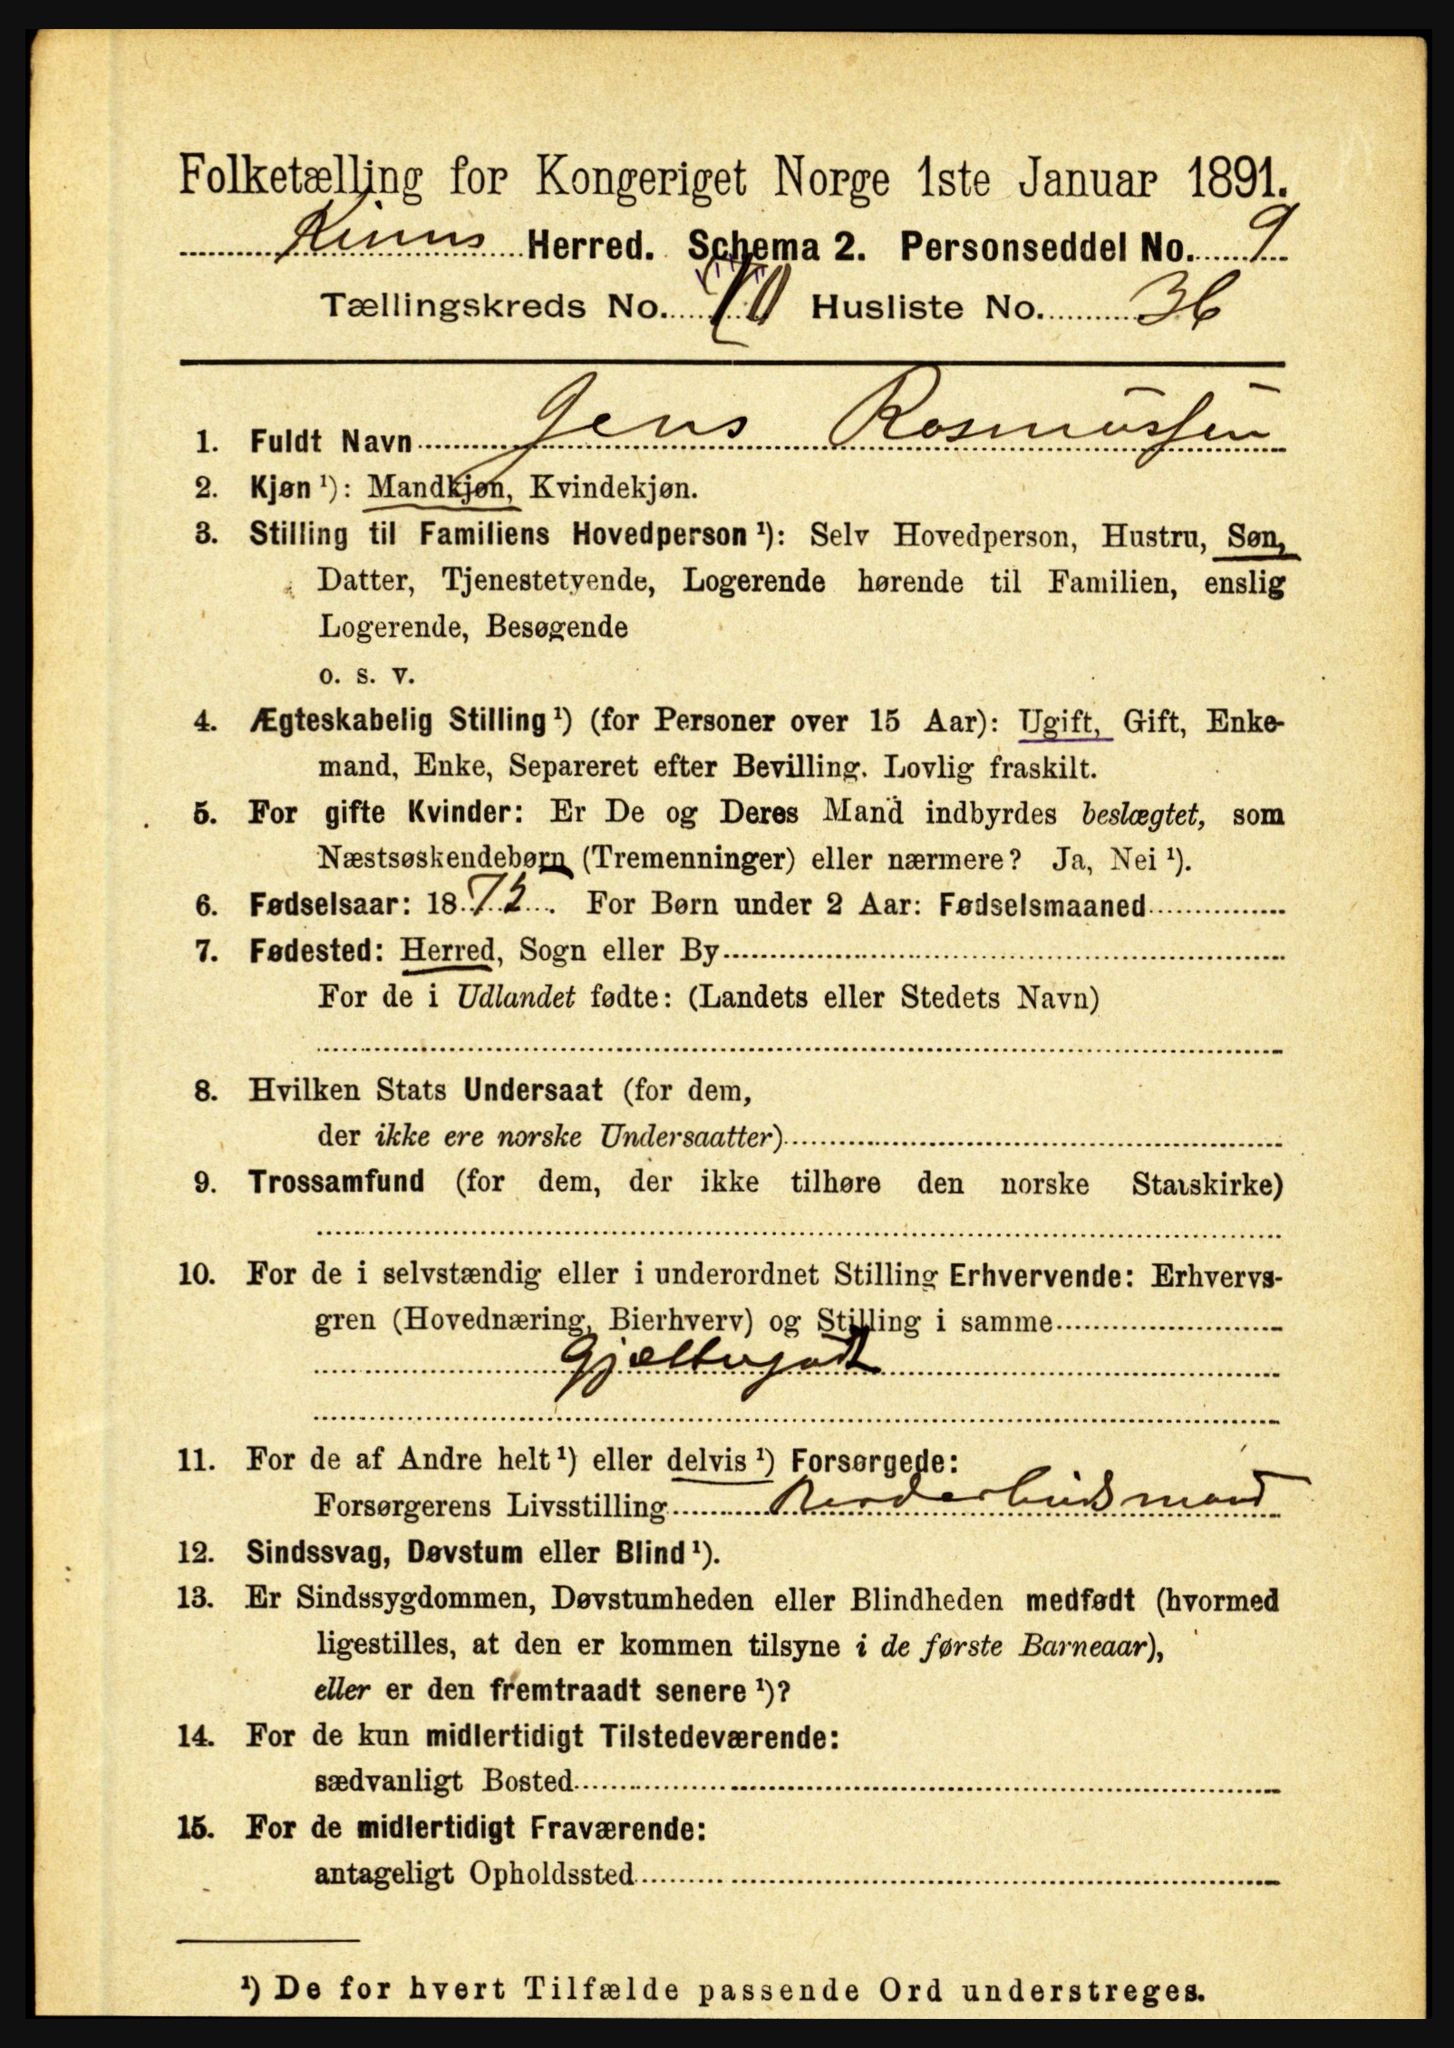 Folketælling for Kongeriget Norge 1ste Januar 1891.
Kinns Herred. Schema 2. Personseddel No. 9
Tællingskreds No. 10 Husliste No. 36
1. Fuldt Navn Jens Rasmussen
2. Kjøn ¹): Mandkjøn, Kvindekjøn.
3. Stilling til Familiens Hovedperson ¹): Selv Hovedperson, Hustru, Søn,
Datter, Tjenestetyende, Logerende hørende til Familien, enslig
Logerende, Besøgende
o. s. v.
4. Ægteskabelig Stilling ¹) (for Personer over 15 Aar): Ugift, Gift, Enke-
mand, Enke, Separeret efter Bevilling. Lovlig fraskilt.
5. For gifte Kvinder: Er De og Deres Mand indbyrdes beslægtet, som
Næstsøskendebørn (Tremenninger) eller nærmere? Ja, Nei ¹).
6. Fødselsaar: 1872. For Børn under 2 Aar: Fødselsmaaned
7. Fødested: Herred, Sogn eller By
For de i Udlandet fødte: (Landets eller Stedets Navn)
8. Hvilken Stats Undersaat (for dem,
der ikke ere norske Undersaatter)
9. Trossamfund (for dem, der ikke tilhøre den norske Statskirke)
10. For de i selvstændig eller i underordnet Stilling Erhvervende: Erhvervs-
gren (Hovednæring, Bierhverv) og Stilling i samme
11. For de af Andre helt ¹) eller delvis ¹) Forsørgede:
Forsørgerens Livsstilling
12. Sindssvag, Døvstum eller Blind ¹).
13. Er Sindssygdommen, Døvstumheden eller Blindheden medfødt (hvormed
ligestilles, at den er kommen tilsyne i de første Barneaar),
eller er den fremtraadt senere ¹)?
14. For de kun midlertidigt Tilstedeværende:
sædvanligt Bosted
15. For de midlertidigt Fraværende:
antageligt Opholdssted
¹) De for hvert Tilfælde passende Ord understreges.